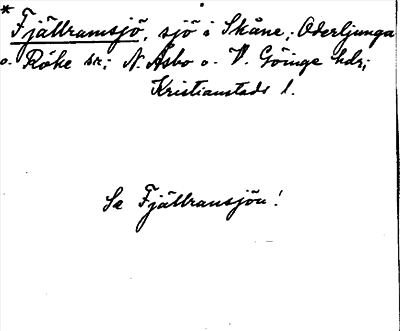 * Fjällramsjö, sjö i Skåne; Oderljunga
o. Röke sn; N. Åsbo o. V. Göinge hdr;
Kristianstads l.
Se Fjällransjön!